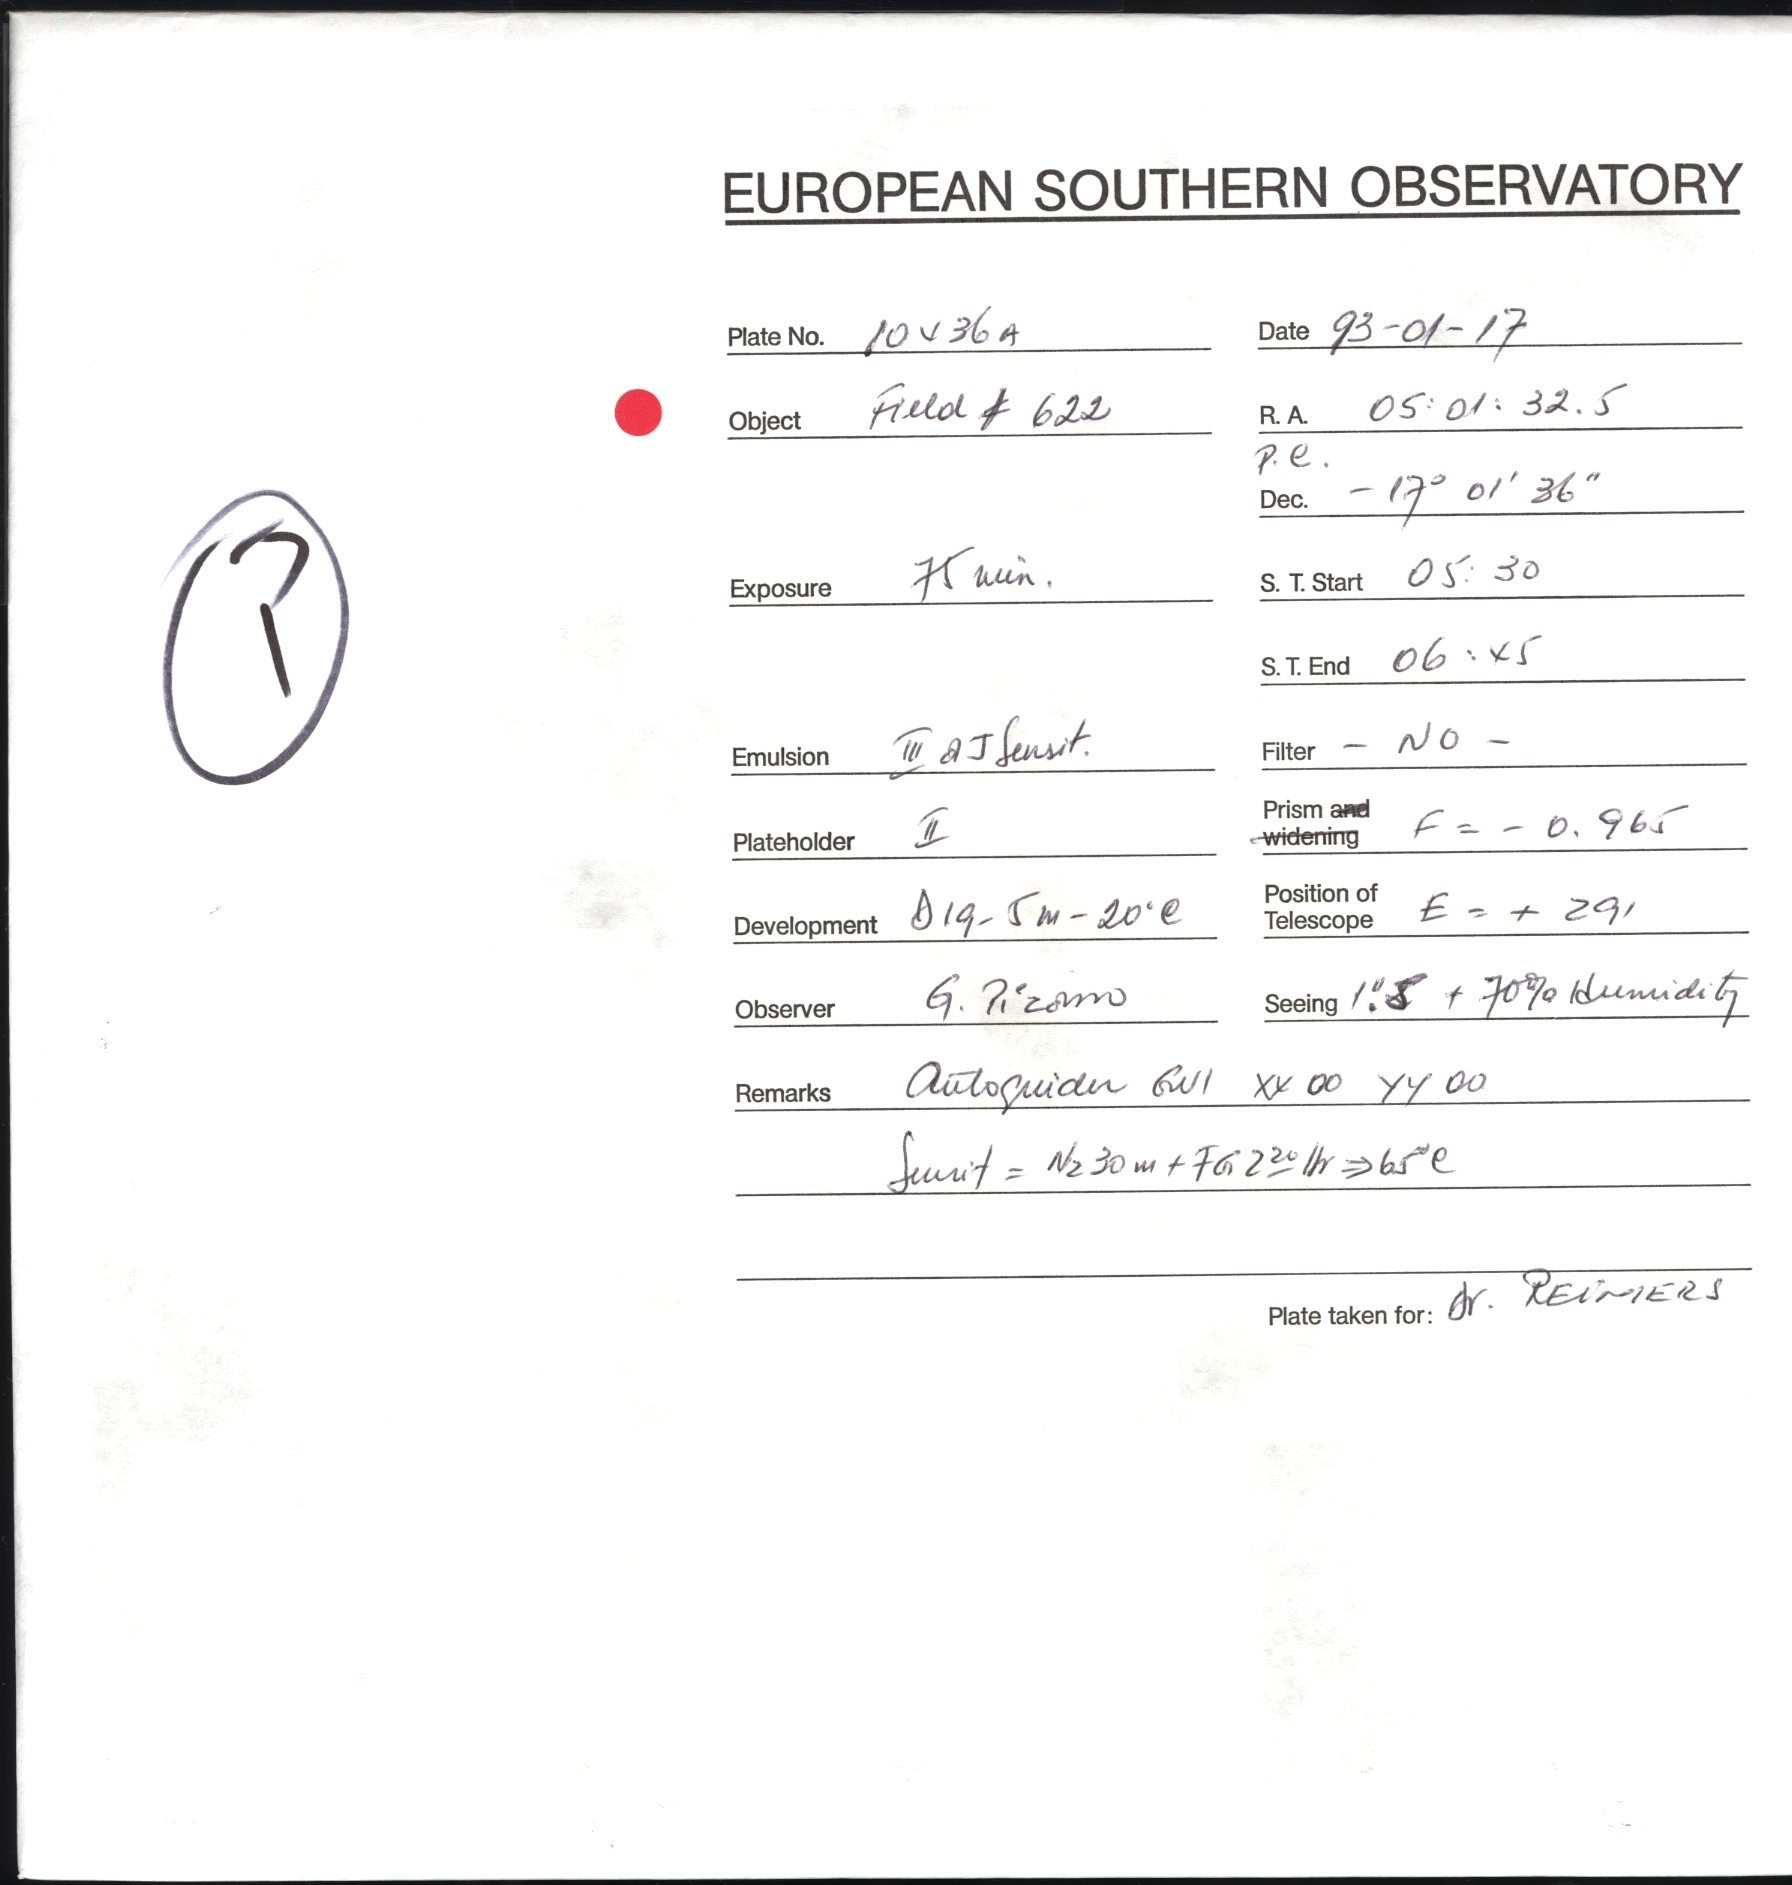 EUROPEAN SOUTHERN OBSERVATORY
Plate No. 10436A Date 93-01-17
Object Field # 622 R. A. 05:01:32.5
P.C.
Dec. -17° 01' 36"
Exposure 75 min. S. T. Start 05:30
S. T. End 06:45
?
Emulsion III aJ Sensit. Filter - NO -
Plateholder II Prism and widening F = - 0.965
Development D19-5m-20°C Position of Telescope E = + 291
Observer G. Pizarro Seeing 1".5 + 70% Humidity
Remarks Autoguider GW1 XX 00 YY 00
Sensit = N2 30m + FG 2 20 Hr ⇒ 65°C
Plate taken for: Dr. REIMERS